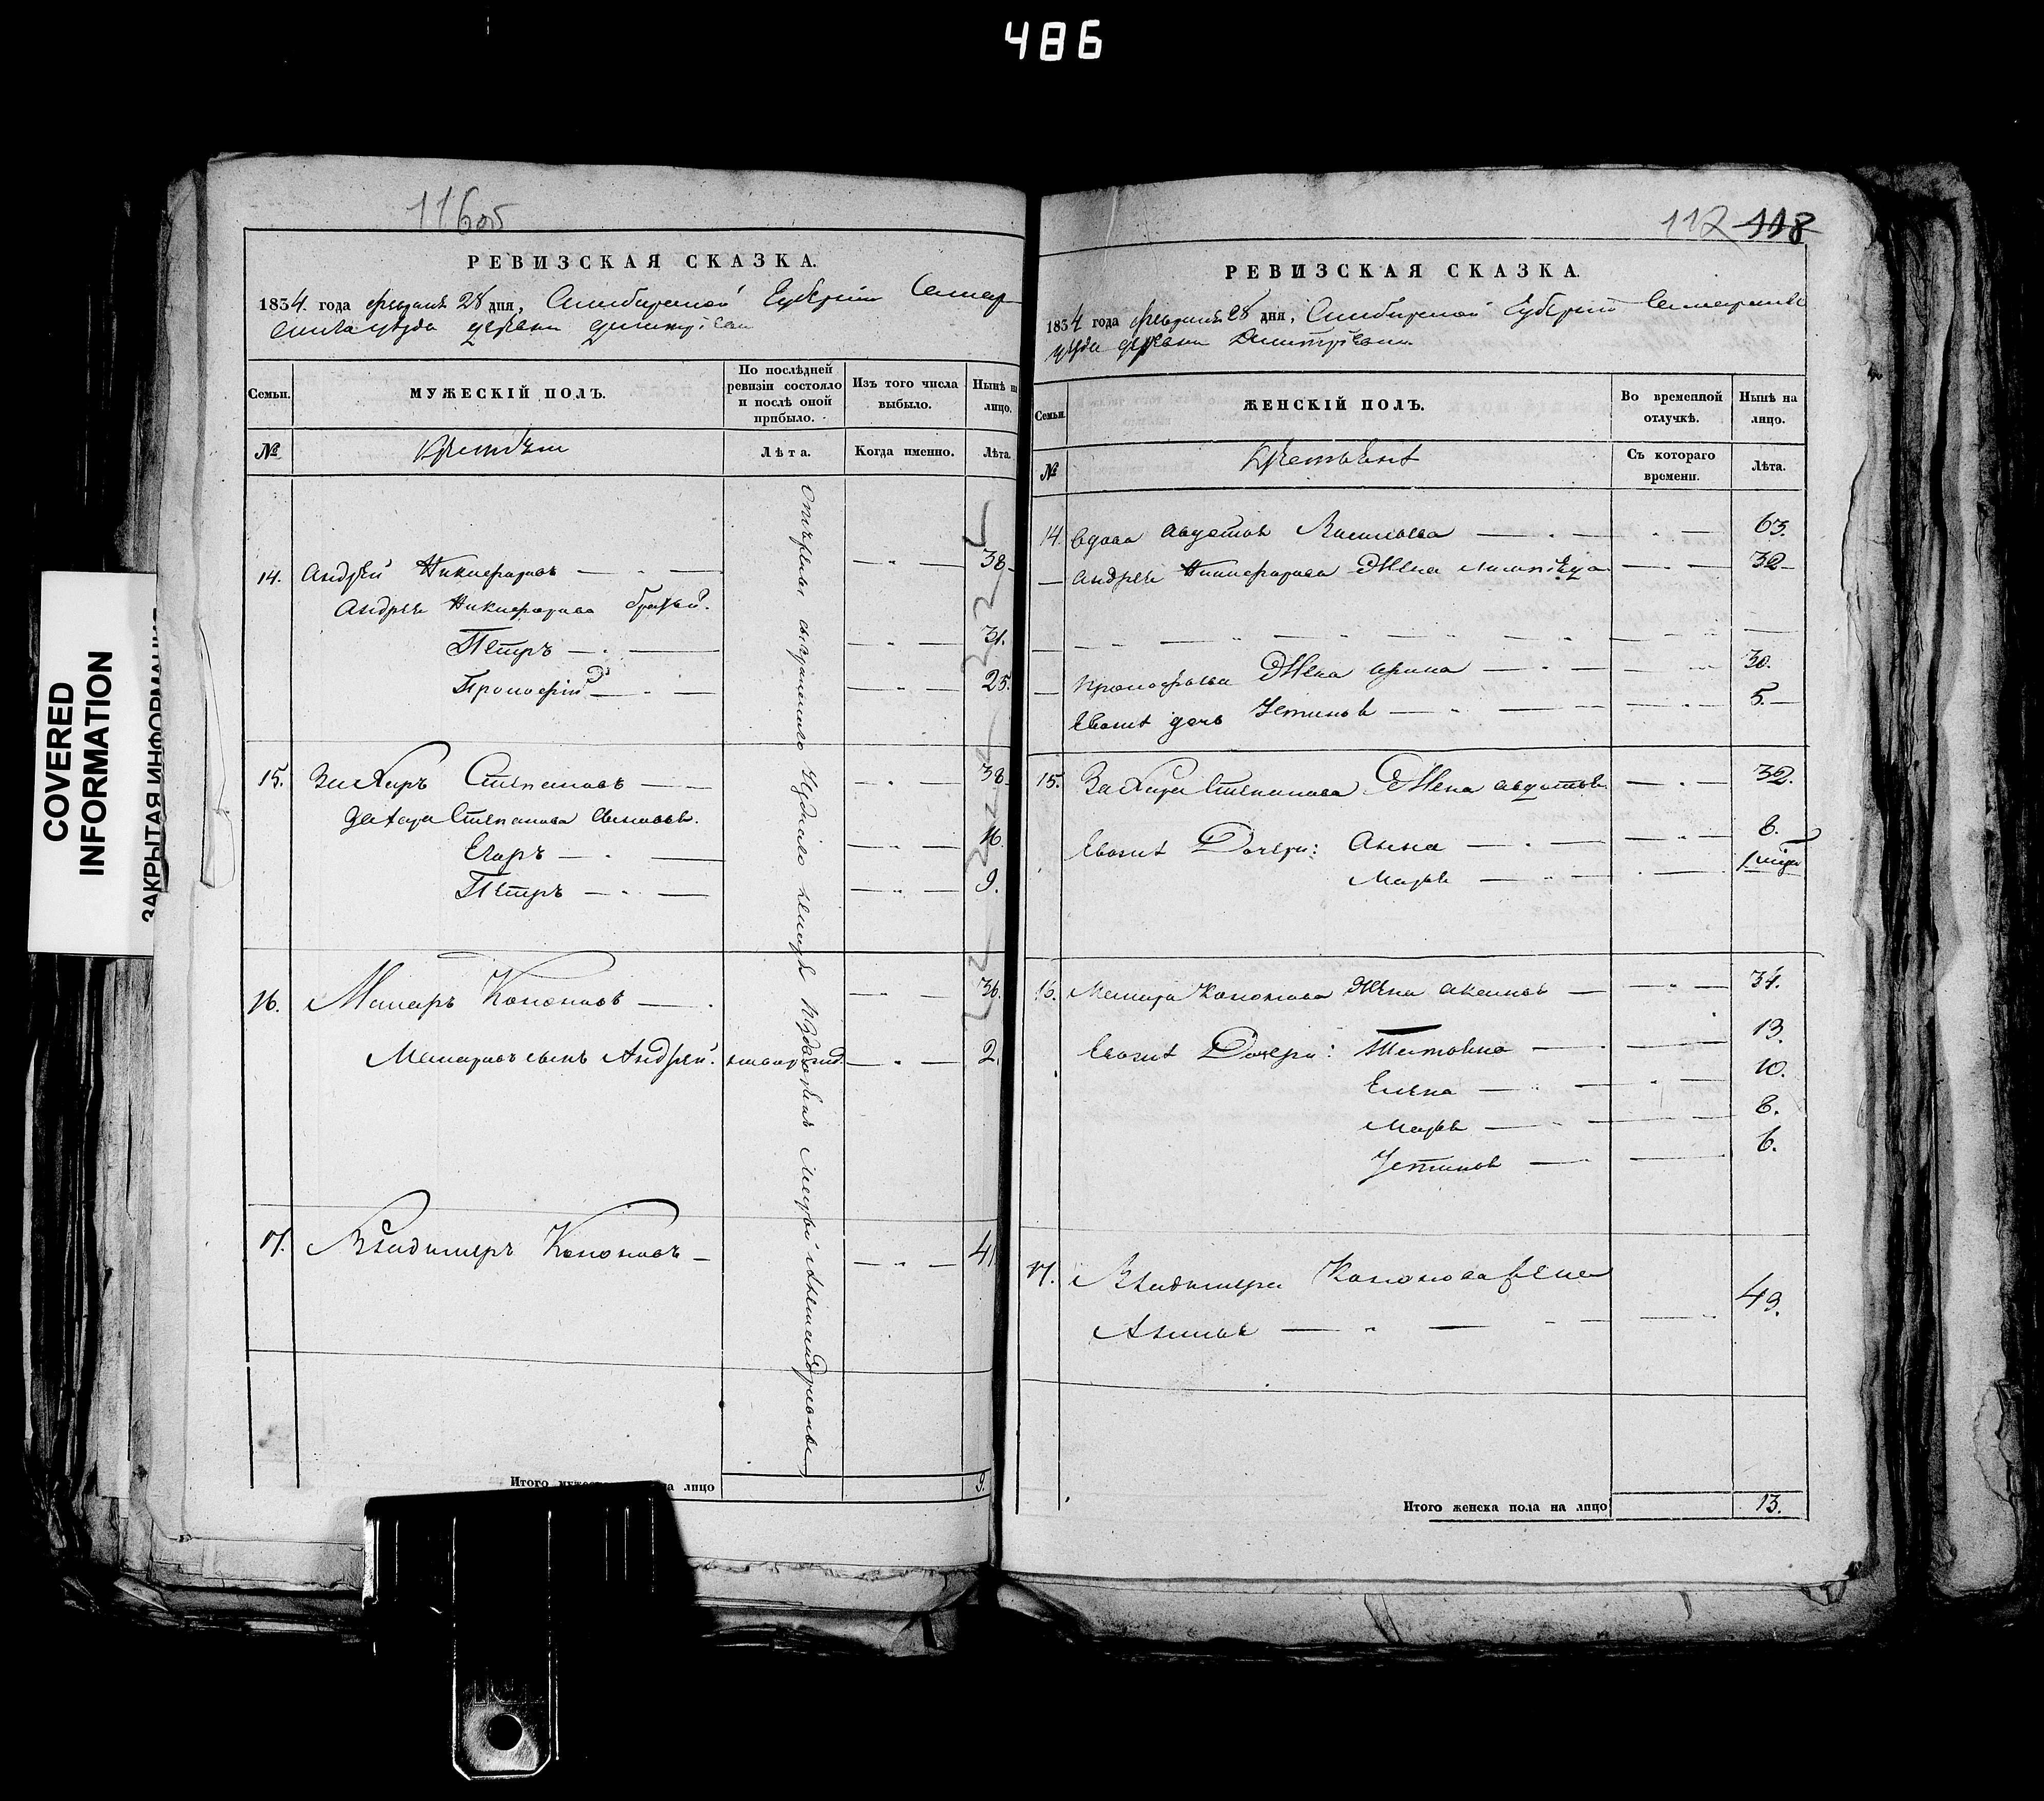 486
116об
РЕВИЗСКАЯ СКАЗКА.
1834 года февраля 28 дня, Симбирской Губернии Самар
скаго уезда деревни Дмитріевки
Семьи.
МУЖЕСКІЙ ПОЛЪ.
По послѣдней ревизіи состояло и послѣ оной прибыло.
Изъ того числа выбыло.
Нынѣ на лицо.
№
Крестьяне
Лѣта.
Когда именно.
Лѣта.
14. Андрей Никифоровъ — 38
Андрея Никифорова братья.
Петръ — 31.
Прокофій 2й — 25.
15. Захаръ Степановъ — 38
Захара Степанова сыновья.
Егоръ — 16.
Петръ — 9.
16. Макаръ Кононовъ — 36.
Макаровъ сынъ Андрей. — 2.
17. Владимеръ Кононовъ — 41
Итого на лицо 9.
112 118
РЕВИЗСКАЯ СКАЗКА.
1834 года февраля 28 дня, Симбирской Губерніи Самарскаго
уезда деревни Дмитріевки
Семьи.
ЖЕНСКІЙ ПОЛЪ.
Во временной отлучкѣ.
Нынѣ на лицо.
№
Крестьянъ
Съ котораго времени.
Лѣта.
14. вдова Авдотья Васильева — 63.
Андрея Никифорова Жена — 32
Прокофьева Жена Арина — 30.
Евонъ дочь Устинья — 5.
15. Захара Степанова Жена Авдотья — 32.
Евонъ Дочери: Анна — 6.
Марья —
16. Макара Кононова Жена Аксинья — 34.
Евонъ Дочери: Татьяна — 13.
Елена — 10.
Марья — 8.
Устинья — 6.
17. Владимера Кононова Жена
Аксинья — 49.
Итого женска пола на лицо 13.
COVERED
INFORMATION
ЗАКРЫТАЯ ИНФОРМАЦИЯ